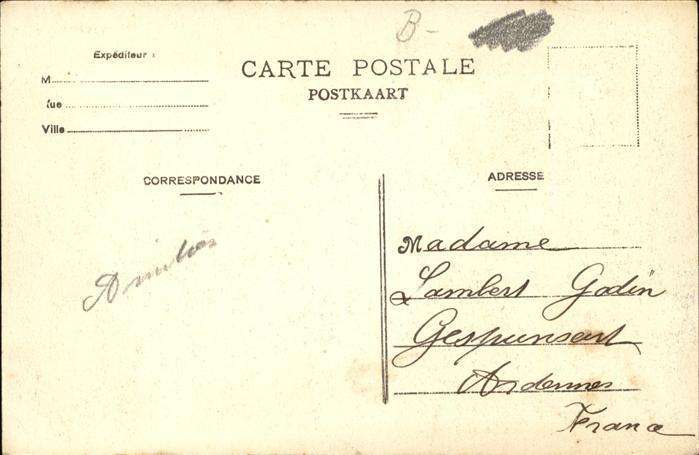 B-
Expéditeur :
CARTE POSTALE
POSTKAART
M
Rue
Ville
CORRESPONDANCE
ADRESSE
Madame
Lambert Godin
Gespunsart
Ardennes
France